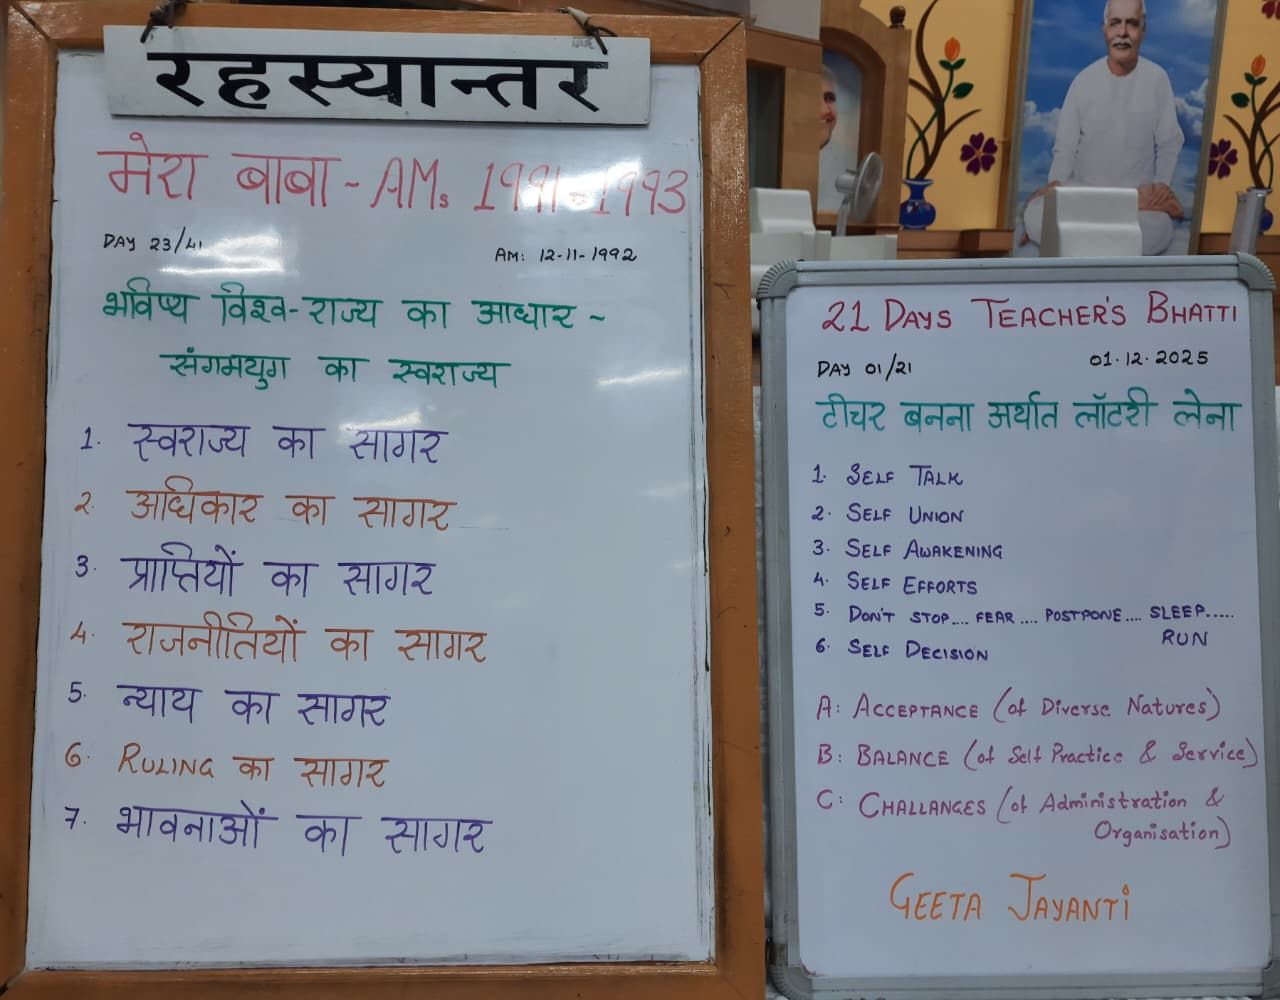 रहस्यान्तर
मेरा बाबा - AMs 1991-1993
DAY 23/41
AM: 12-11-1992
भविष्य विश्व-राज्य का आधार ~
संगमयुग का स्वराज्य
1. स्वराज्य का सागर
2. अधिकार का सागर
3. प्राप्तियों का सागर
4. राजनीतियों का सागर
5. न्याय का सागर
6. RULING का सागर
7. भावनाओं का सागर
21 DAYS TEACHER'S BHATTI
DAY 01/21
01.12.2025
टीचर बनना अर्थात लॉटरी लेना
1. SELF TALK
2. SELF UNION
3. SELF AWAKENING
4. SELF EFFORTS
5. DON'T STOP.... FEAR .... POSTPONE .... SLEEP.....
RUN
6. SELF DECISION
A: ACCEPTANCE (of Diverse Natures)
B: BALANCE (of Self Practice & Service)
C: CHALLANGES (of Administration &
Organisation)
GEETA JAYANTI